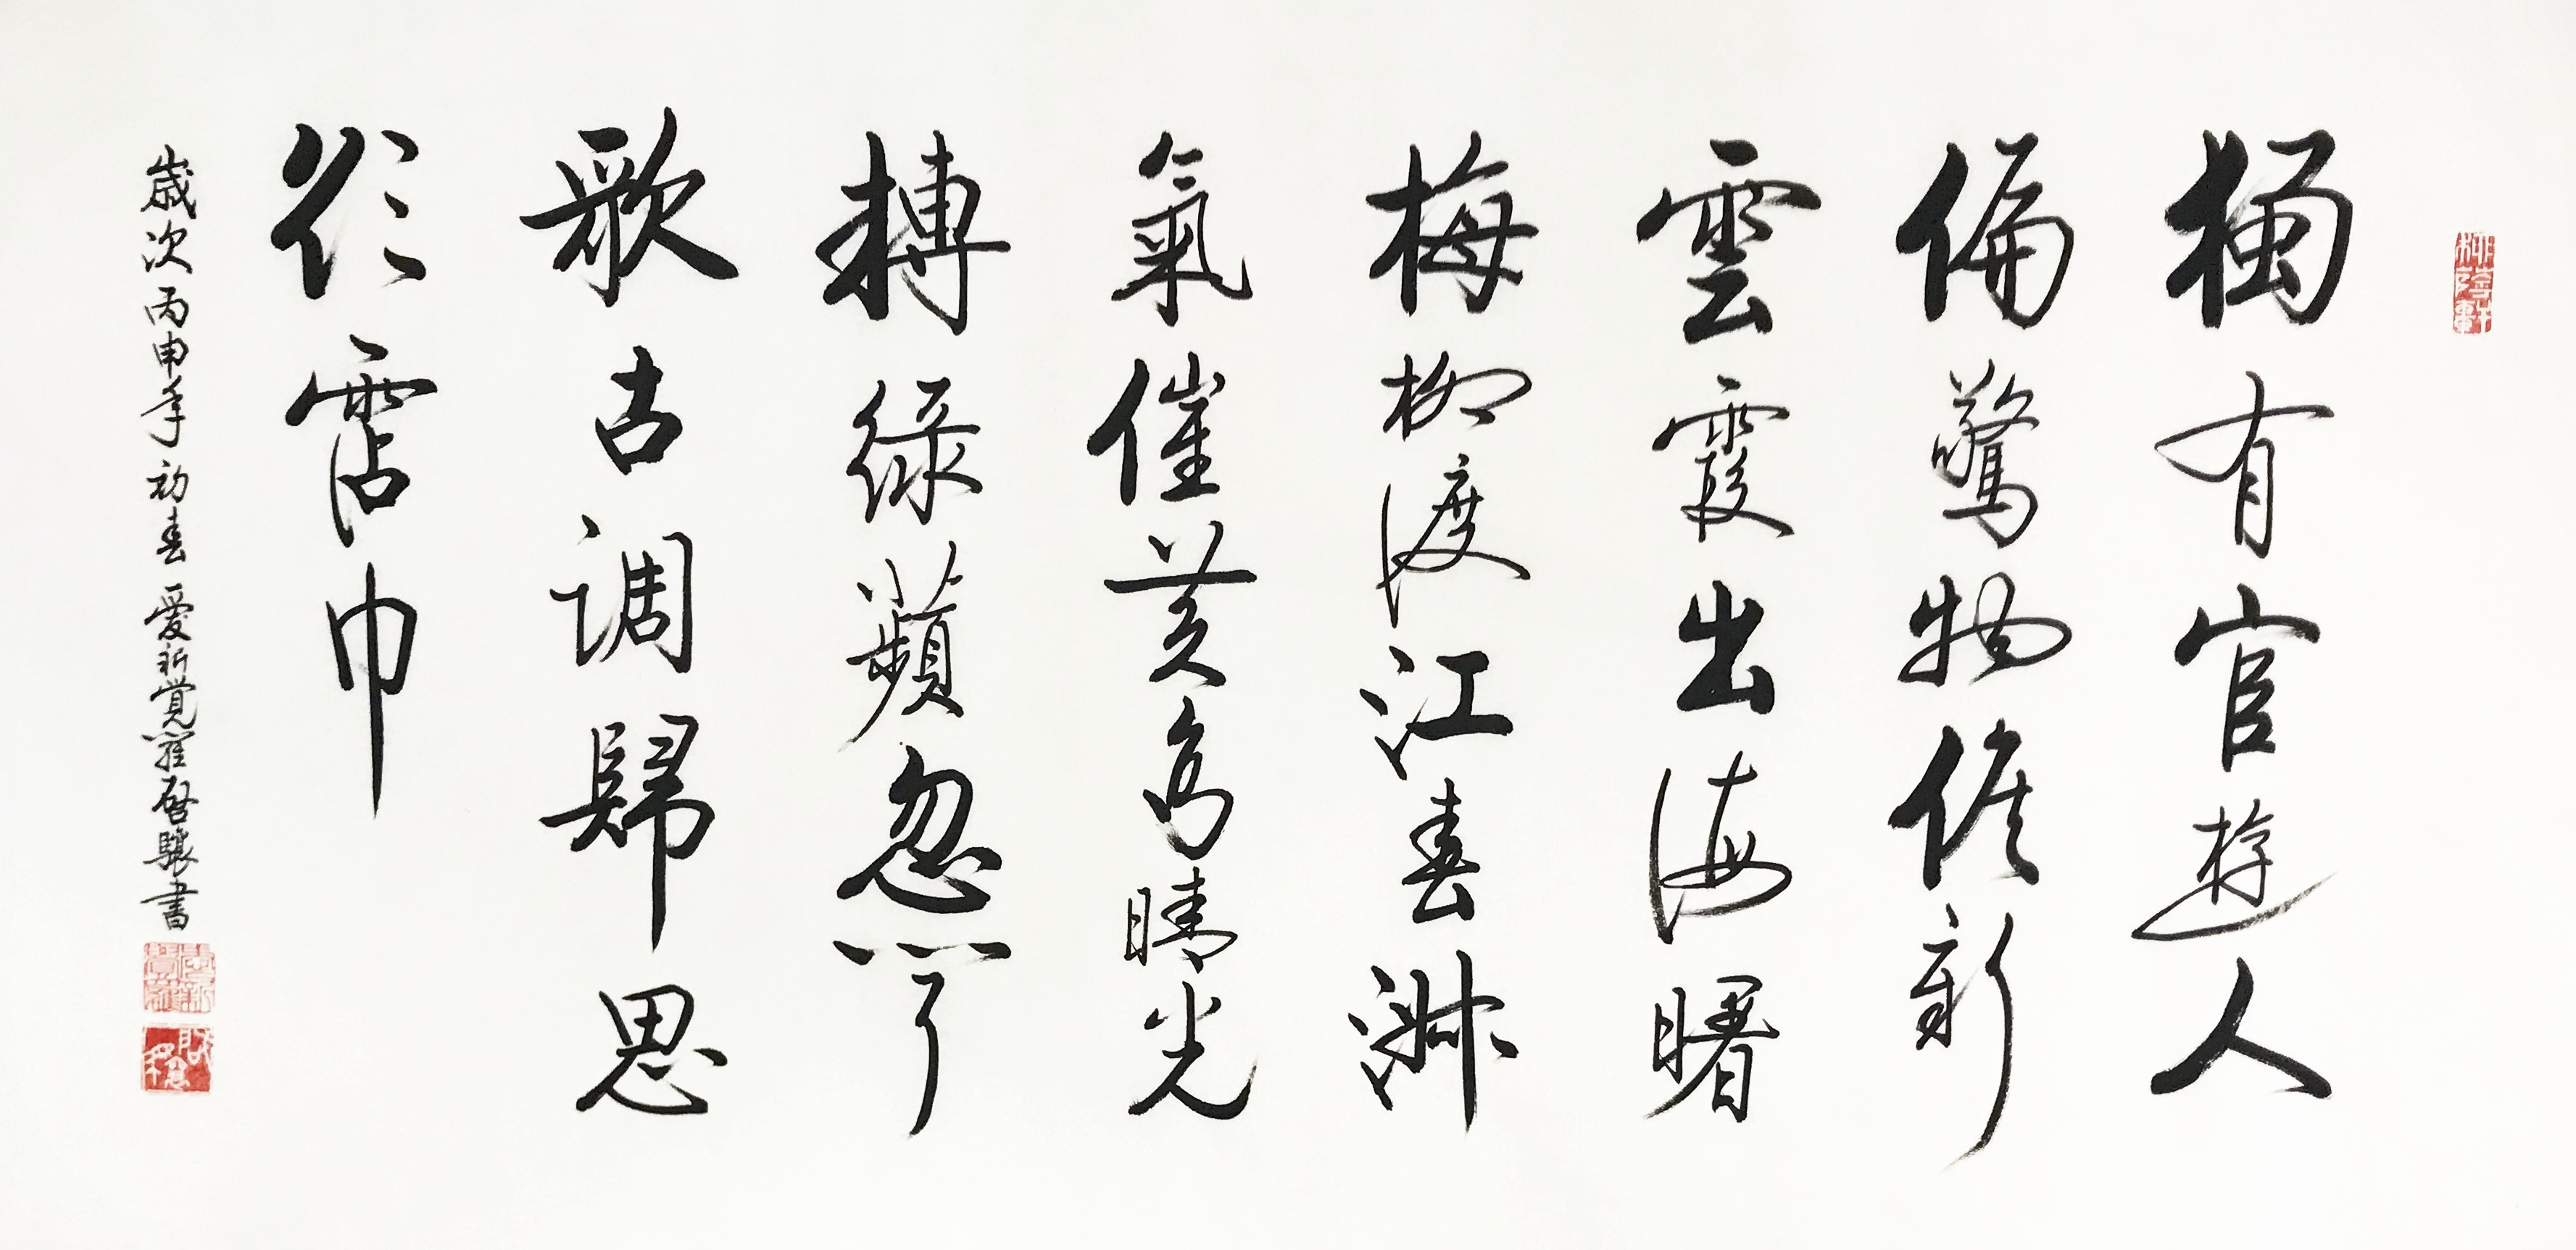 獨有宦遊人
偏驚物候新
雲霞出海曙
梅柳渡江春淑
氣催黃鳥晴光
轉綠蘋忽聞
歌古調歸思
欲霑巾
歲次丙申年初春 愛新覺羅啓驤書